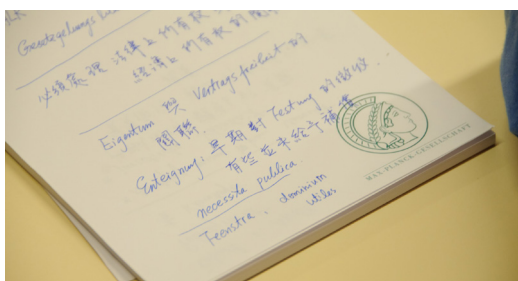 必須處理法律上的有權
經濟上的有權的關
Eigentum 與 Vertragsfreiheit 的
關聯.
Enteignung: 早期對 Festung 的徵收..
有些並未給予補償
necessita publica.
Feenstra. dominium
utiles
MAX-PLANCK-GESELLSCHAFT